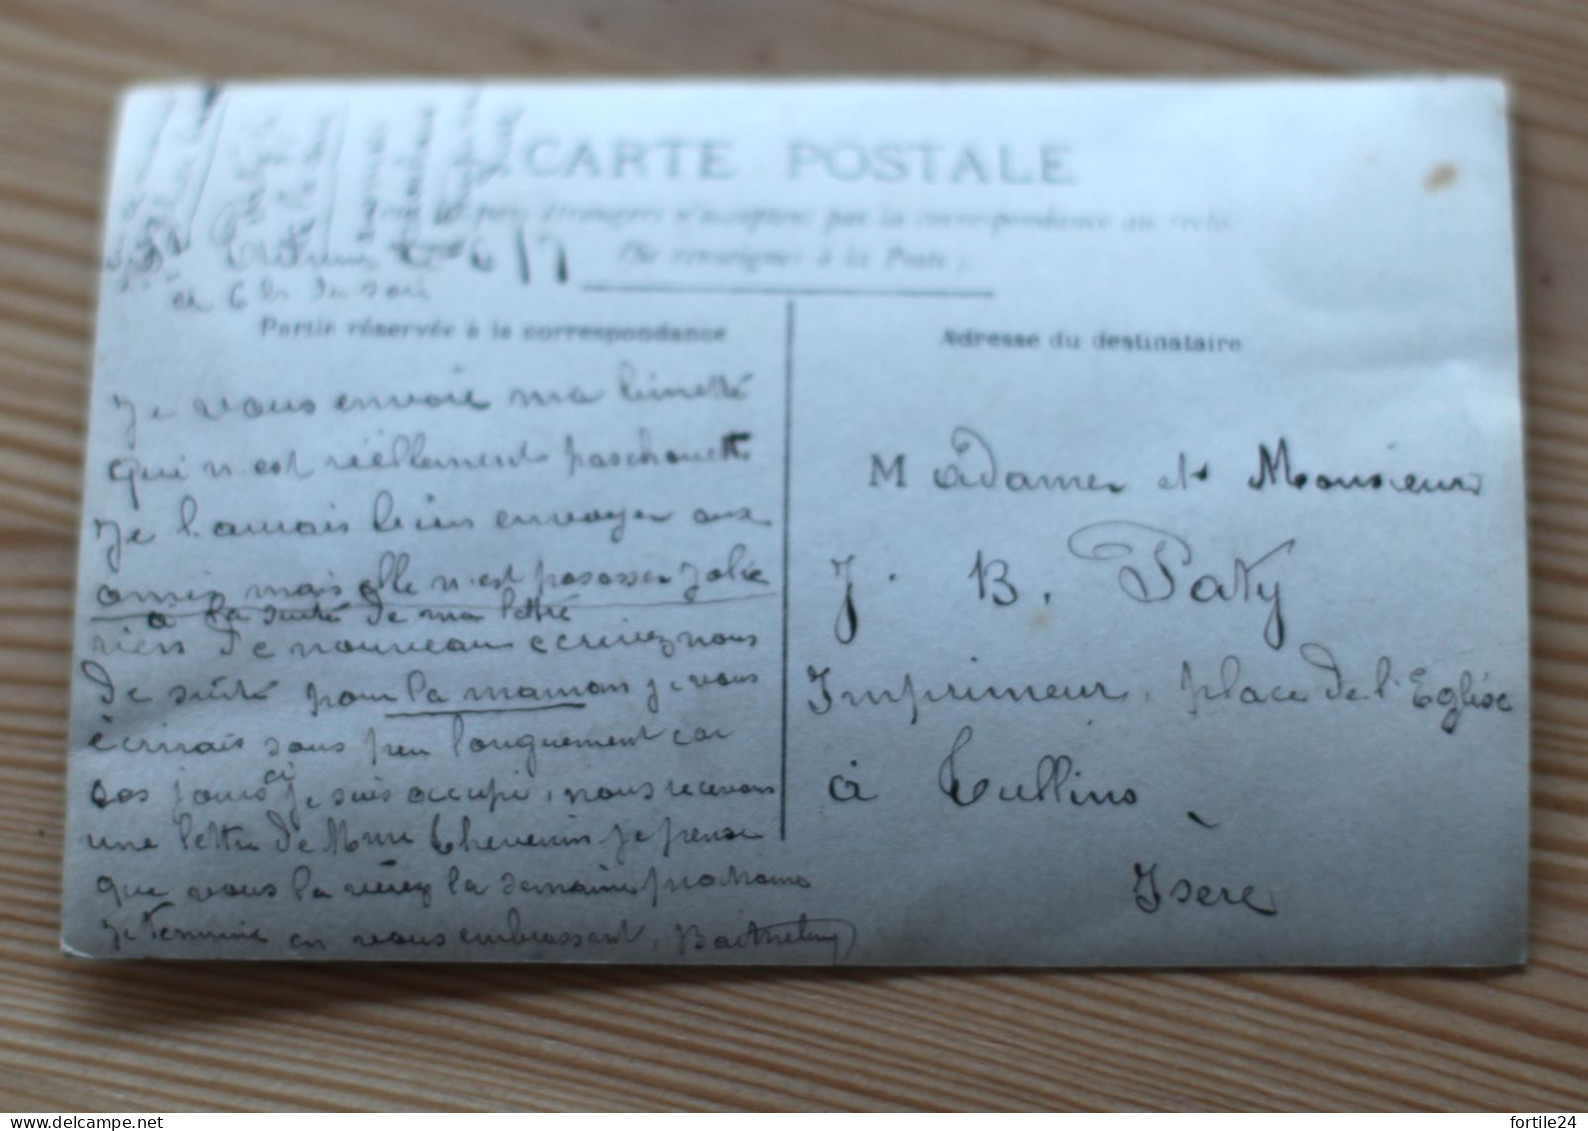 CARTE POSTALE
Tous les pays étrangers n'acceptent pas la correspondance au recto
(Se renseigner à la Poste).
le 17
à 6 hs du soir
Partie réservée à la correspondance
Adresse du destinataire
Je vous envoie ma binetté
qui n'est réèllement pas chouette
Je l'aurais bien envoyer aux
amis mais elle n'est pas assez jolie
à la suite de ma lettre
rien de nouveau écrivez nous
de suite pour la maman je vous
écrirais sous peu longuement car
ces jours ci je suis occupé, nous recevons
une lettre de Mme Thevenin je pense
que vous la verez la semaine prochaine
Je termine en vous embrassant, Barthelemy
Madame et Monsieur
J. B. Paty
Imprimeur, place de l'Eglise
à Tullins
Isere
fortile24
delcampe.net